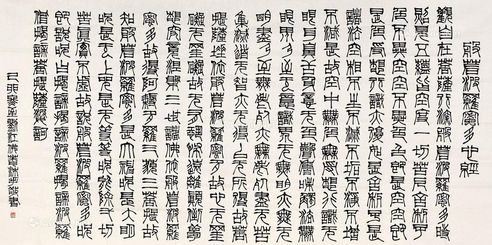 般若波羅蜜多心經
觀自在菩薩行深般若波羅蜜多時
照見五蘊皆空度一切苦厄舍利子
色不異空空不異色色即是空空即
是色受想行識亦復如是舍利子是
諸法空相不生不滅不垢不淨不增
不減是故空中无色无受想行識无
眼耳鼻舌身意无色聲香味觸法无
眼界乃至无意識界无无明亦无无
明盡乃至无老死亦无老死盡无苦
集滅道无智亦无得以无所得故菩
提薩埵依般若波羅蜜多故心无罣
礙无罣礙故无有恐怖遠離顛倒夢
想究竟涅槃三世諸佛依般若波羅
蜜多故得阿耨多羅三藐三菩提故
知般若波羅蜜多是大神咒是大明
咒是无上咒是无等等咒能除一切
苦真實不虛故說般若波羅蜜多咒
即說咒曰揭諦揭諦波羅揭諦波羅
僧揭諦菩提薩婆訶